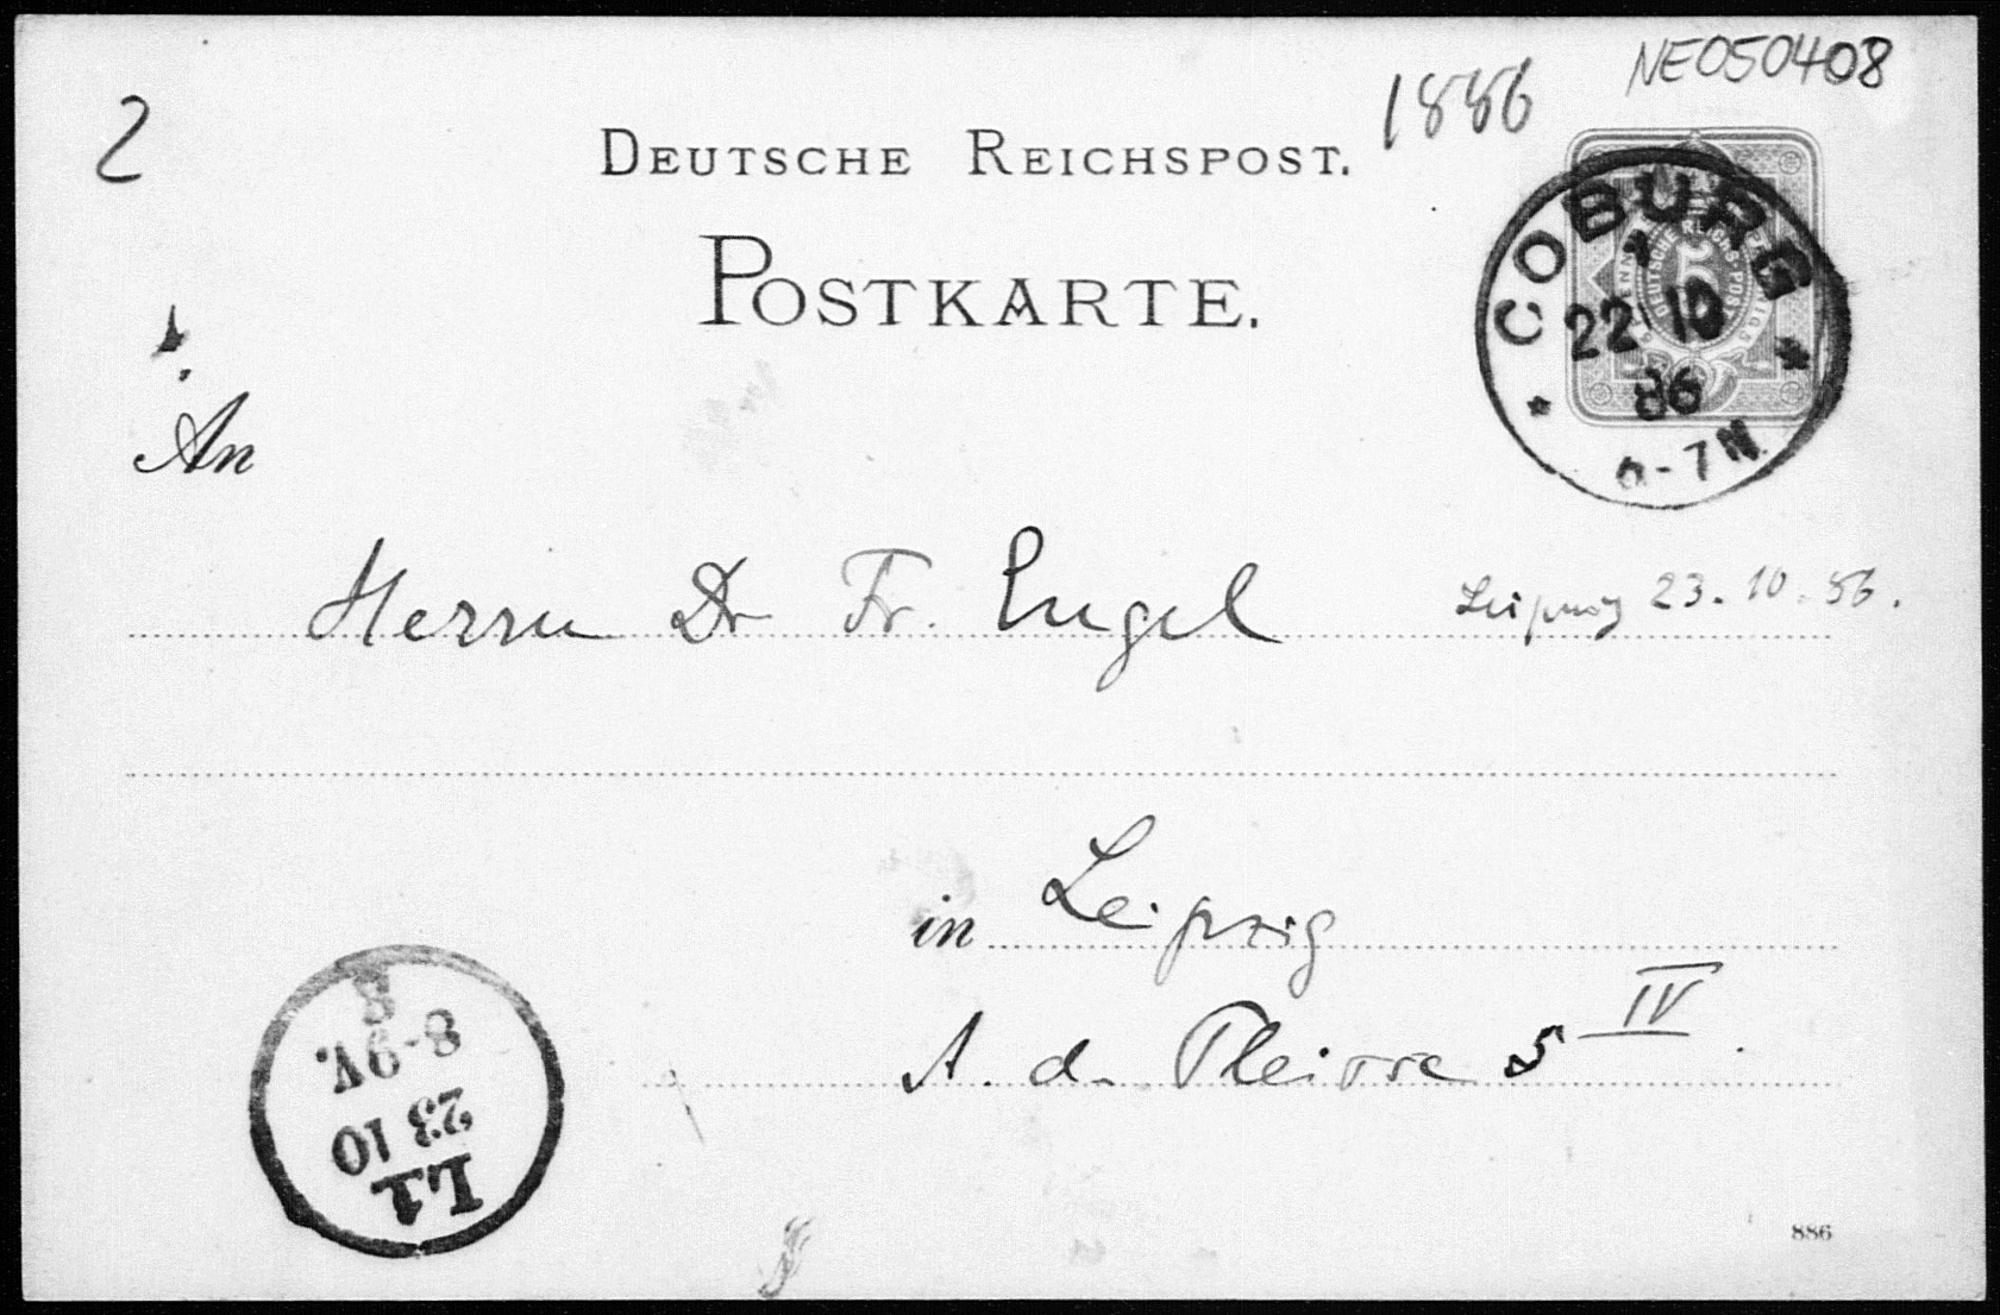 NE050408
1886
2
DEUTSCHE REICHSPOST.
POSTKARTE.
COBURG
1
22 10
86
6-7N.
FÜNF PFENNIG
DEUTSCHE REICHS-POST
5
An
Herrn Dr Fr. Engel
Leipzig 23.10.86.
in Leipzig
A. d. Pleisse 5 IV.
L1
23 10
8-9V.
8
886